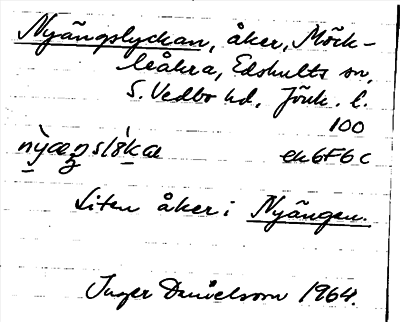 Nyängslyckan, åker, Möck-
leåkra, Edshults sn,
S. Vedbo hd, Jönk. l.
100
ek 6F6c
Liten åker i Nyängen.
Inger Danielsson 1964.